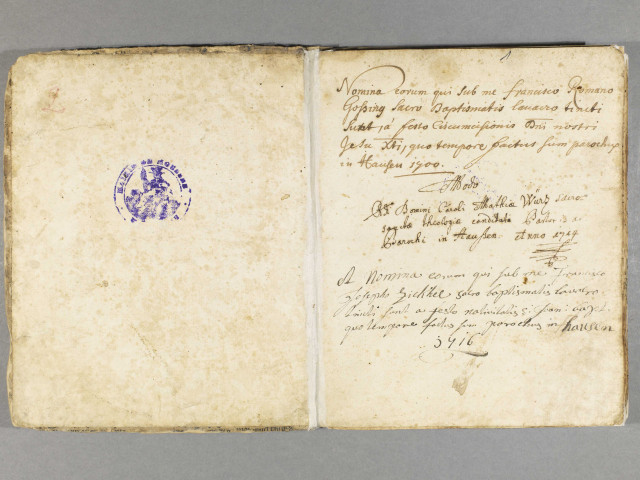 Nomina eorum qui sub me Francisco Romano
Gossing Sacro Baptismatis lavacro tincti
Sunt, á festo Circumcisionis Dni nostri
Jesu Xti, quo tempore factus sum parochus
in Hausen 1700.
Modo
Domini Caroli Mathiæ Würz sacro
sanctæ theologiæ candidati Pastoris a
Parochi in Haussen Anno 1714
Nomina eorum qui sub me Francisco
Joseph sacro baptismatis lavacro
tincti sunt a festo nativitatis
quo tempore factus sum parochus in hausen
1716